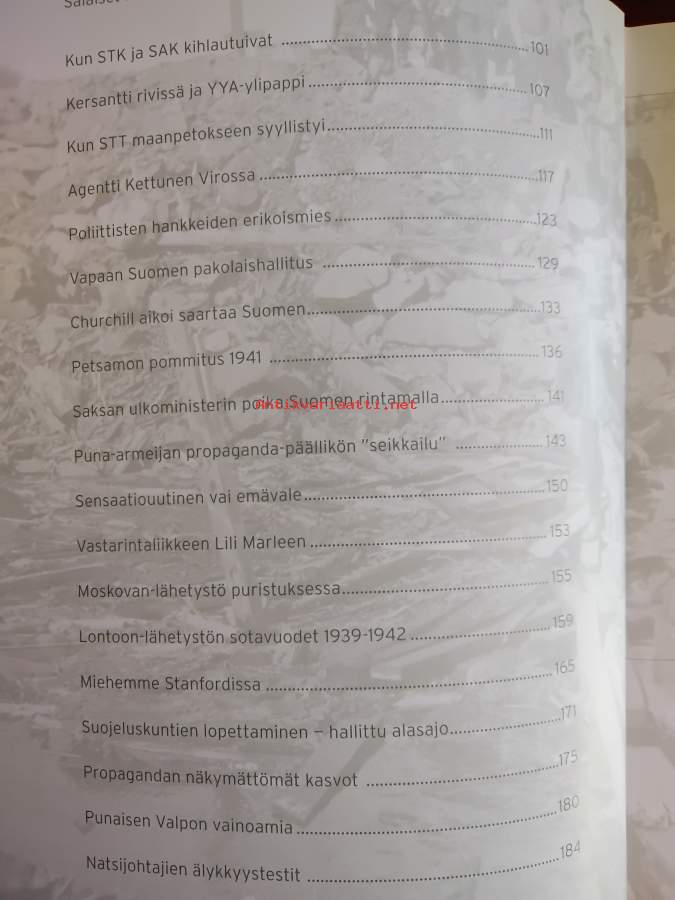 Salaiset
Kun STK ja SAK kihlautuivat ........ 101
Kersantti rivissä ja YYA-ylipappi ........ 107
Kun STT maanpetokseen syyllistyi ........ 111
Agentti Kettunen Virossa ........ 117
Poliittisten hankkeiden erikoismies ........ 123
Vapaan Suomen pakolaishallitus ........ 129
Churchill aikoi saartaa Suomen ........ 133
Petsamon pommitus 1941 ........ 136
Saksan ulkoministerin poika Suomen rintamalla ........ 141
Antikvariaatti.net
Puna-armeijan propaganda-päällikön ”seikkailu” ........ 143
Sensaatiouutinen vai emävale ........ 150
Vastarintaliikkeen Lili Marleen ........ 153
Moskovan-lähetystö puristuksessa ........ 155
Lontoon-lähetystön sotavuodet 1939-1942 ........ 159
Miehemme Stanfordissa ........ 165
Suojeluskuntien lopettaminen – hallittu alasajo ........ 171
Propagandan näkymättömät kasvot ........ 175
Punaisen Valpon vainoamia ........ 180
Natsijohtajien älykkyystestit ........ 184